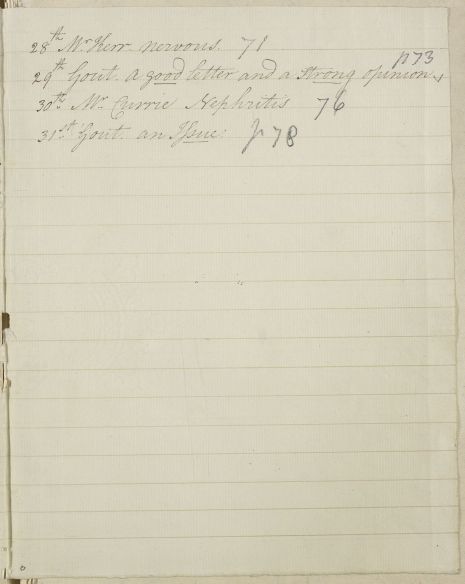 28th Mr Kerr. nervous. 71
29th Gout. a good letter and a strong opinion. p73
30th Mr Currie Nephritis 76
31st Gout. an Issue: p 78